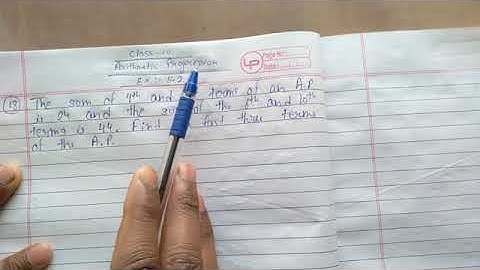 Class-10
Arithmetic Progression
Ex: 5.2
(18) The sum of 4th and terms of an A.P.
is 24 and the of the 6th and 10th
terms is 44. Find first three terms
of the A.P.
LP